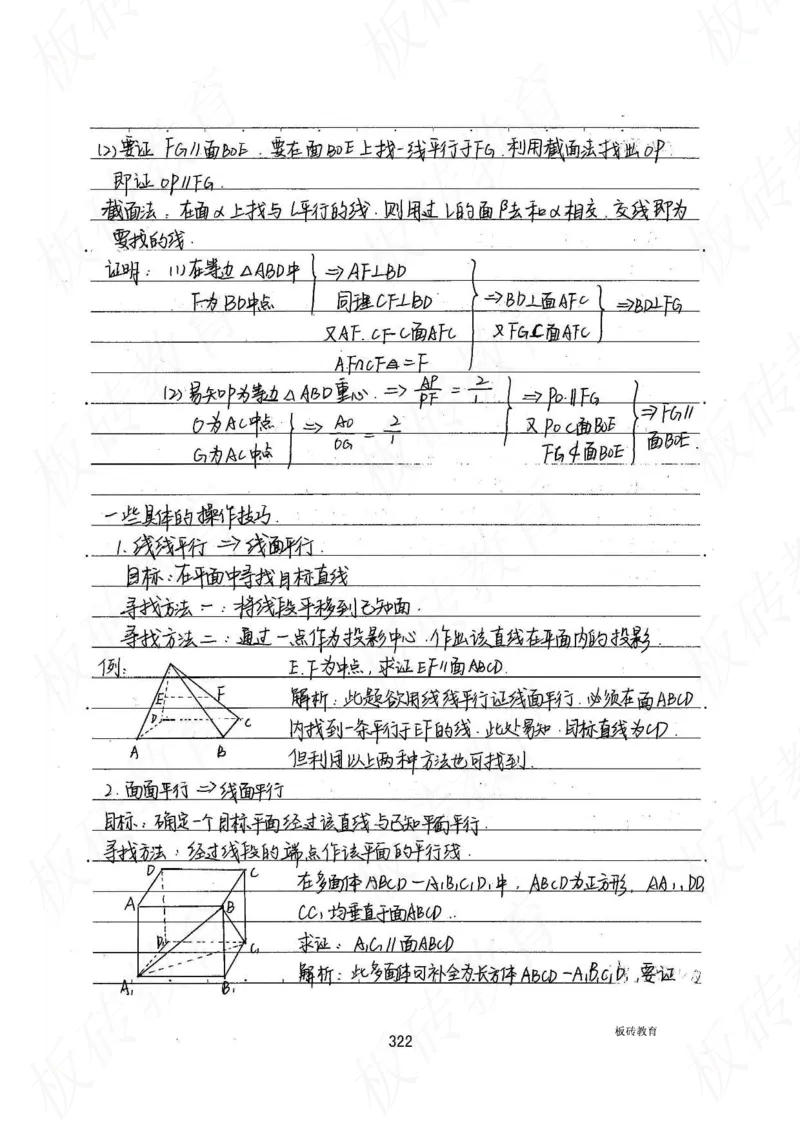 (2)要证 FG∥面BOE. 要在面BOE上找一线平行于FG. 利用截面法找出OP
即证 OP∥FG.
截面法: 在面α上找与l平行的线. 则用过l的面β去和α相交. 交线即为
要找的线.
证明: (1)在等边△ABD中 ⇒AF⊥BD
F为BD中点 同理CF⊥BD ⇒BD⊥面AFC ⇒BD⊥FG
又AF. CF⊂面AFC 又FG⊂面AFC
AF∩CF=F
(2)易知P为等边△ABD重心. ⇒ AP/PF = 2/1 ⇒ PO∥FG
O为AC中点 ⇒ AO/OG = 2/1 又PO⊂面BOE ⇒FG∥
G为AC中点 FG⊄面BOE 面BOE.
一些具体的操作技巧.
1. 线线平行 ⇒ 线面平行.
目标: 在平面中寻找目标直线
寻找方法一: 将线段平移到已知面.
寻找方法二: 通过一点作为投影中心. 作出该直线在平面内的投影.
例: E. F为中点, 求证EF∥面ABCD.
E F
D C
A B
解析: 此题欲用线线平行证线面平行. 必须在面ABCD
内找到一条平行于EF的线. 此处易知. 目标直线为CD.
但利用以上两种方法也可找到.
2. 面面平行 ⇒ 线面平行
目标: 确定一个目标平面经过该直线与已知平面平行.
寻找方法: 经过线段的端点作该平面的平行线.
D C
A B
D₁ C₁
A₁ B₁
在多面体ABCD-A₁B₁C₁D₁中, ABCD为正方形, AA₁, DD₁
CC₁均垂直于面ABCD..
求证: A₁C₁∥面ABCD
解析: 此多面体可补全为长方体ABCD-A₁B₁C₁D₁, 要证
322
板砖教育